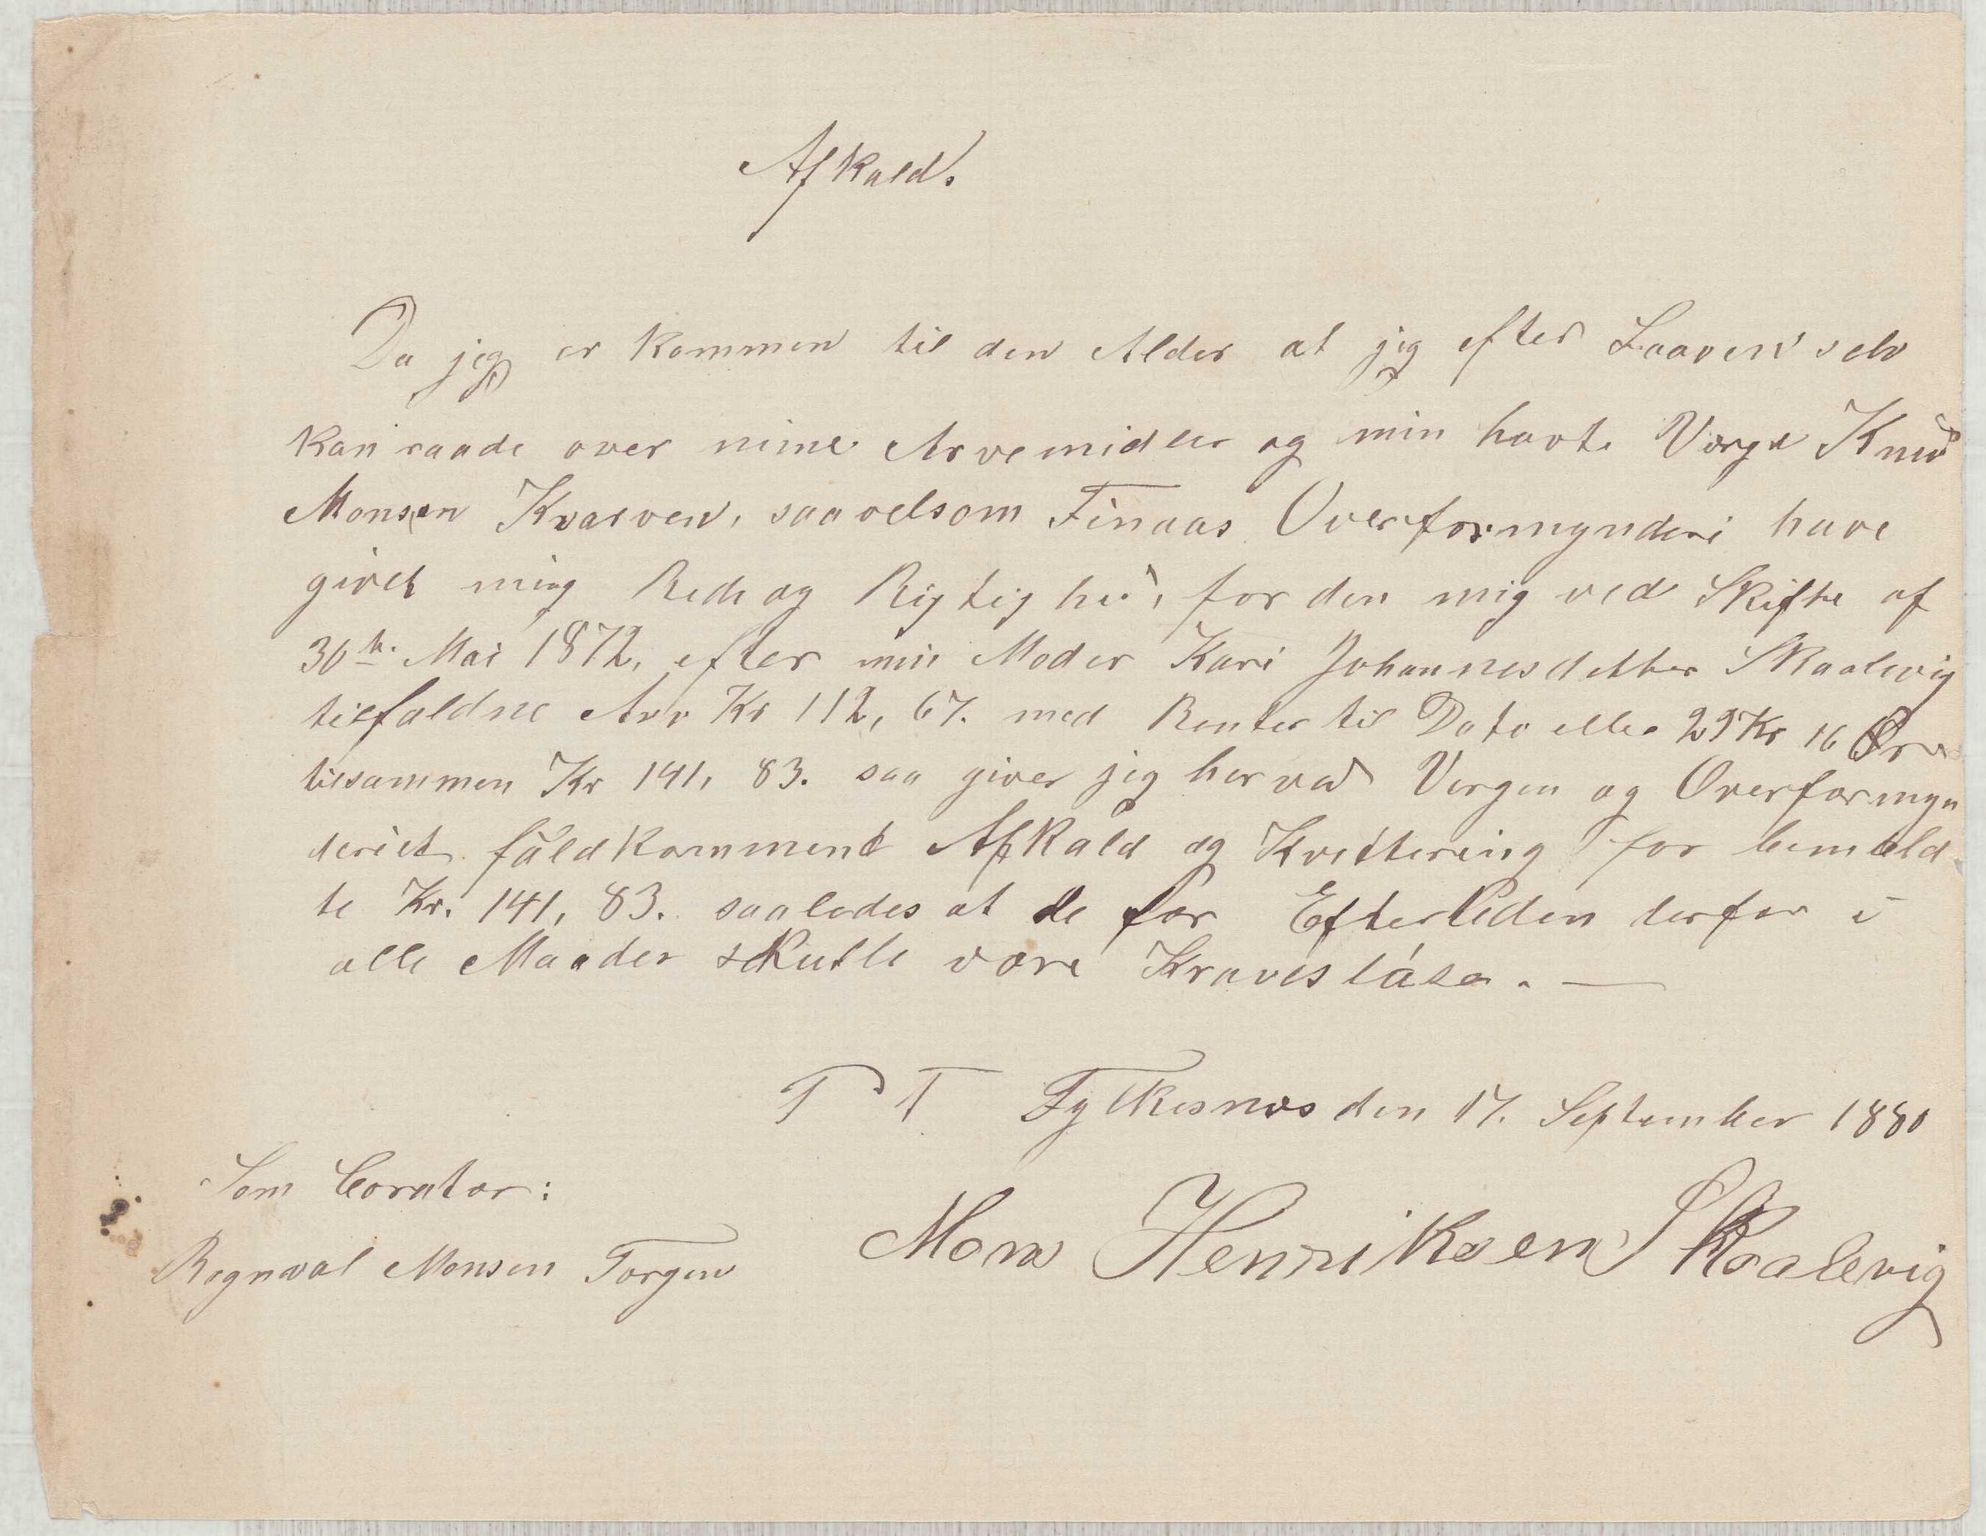 Afkald.
Da jeg er kommen til den Alder at jeg efter Laaven selv
kan raade over mine Arvemidler og min havte Værge Knud
Monsen Kvarven, saavelsom Finaas Overformynderi have
givet mig Rede og Rigtighed, for den mig ved Skifte af
30te Mai 1872, efter min Moder Kari Johannesdatter Skaalevig
tilfaldne Arv Kr 112, 67. med Renter til Dato eller 29 Kr 16 Øre
tilsammen Kr 141, 83. saa giver jeg herved Vergen og Overformyn
deriet fuldkomment Afkald og Kvittering for bemeld
te Kr. 141, 83. saaledes at de for Eftertiden derfor i
alle Maader skulle være Kravesløse. —
P T Fylkesnæs den 17. September 1880
Som Corator:
Mons Henriksen Skaalevig
Ragnval Monsen Torgen